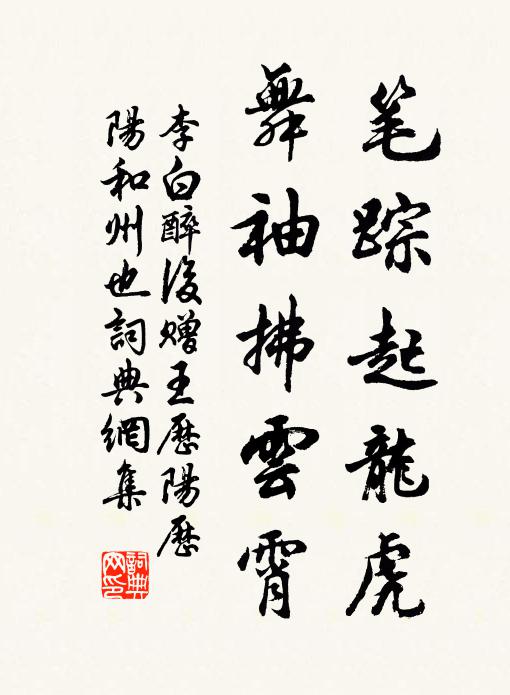 笔踪起龍虎
舞袖拂雲霄
李白醉後赠王歷陽歷
陽和州也詞典網集
詞典
网印